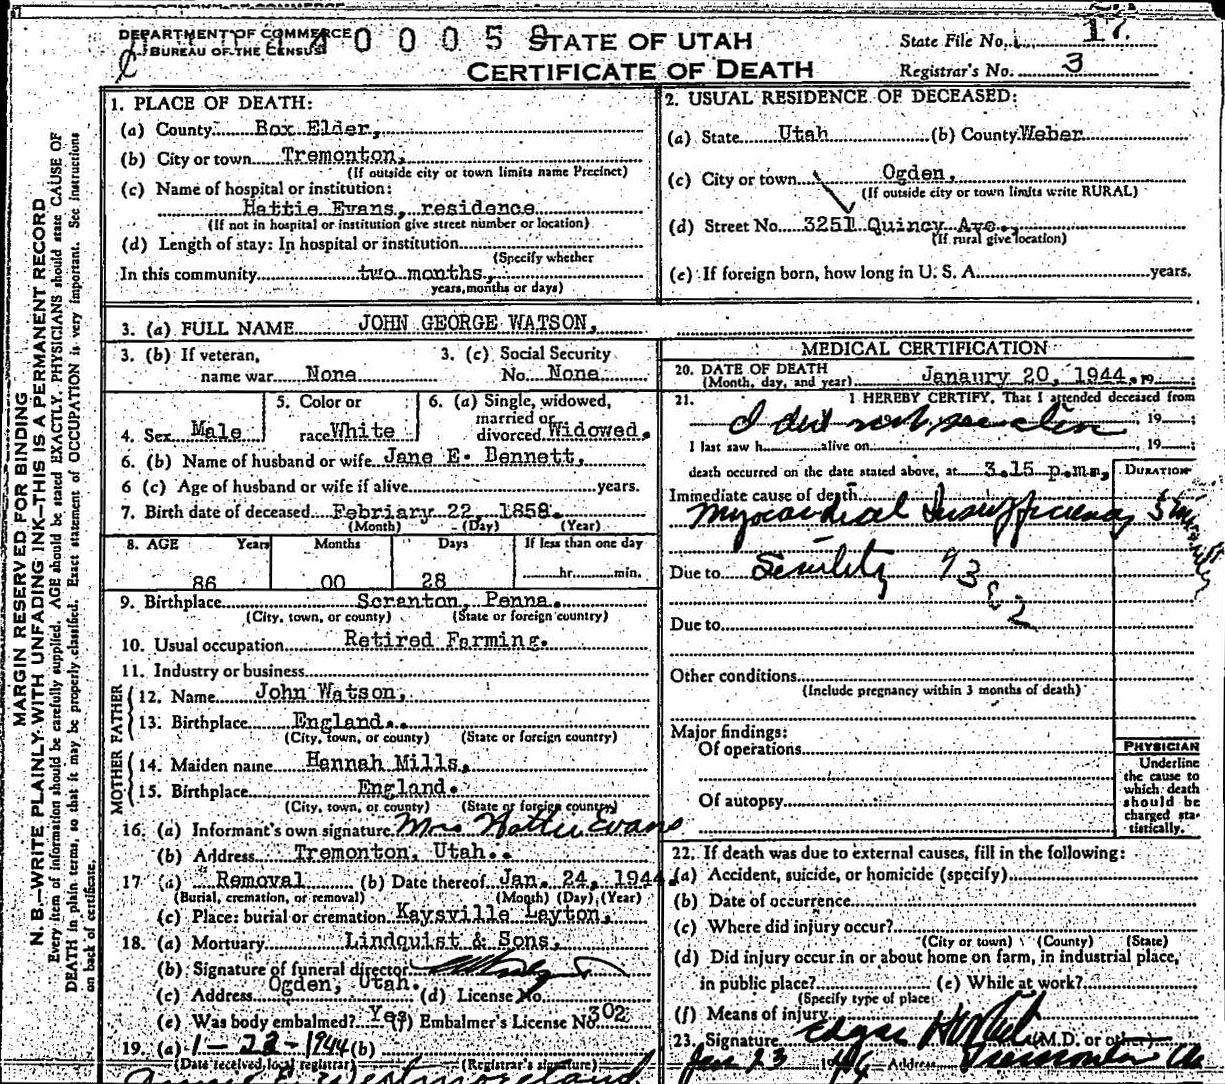 DEPARTMENT OF COMMERCE
BUREAU OF THE CENSUS
0 0 0 5 9
STATE OF UTAH
CERTIFICATE OF DEATH
State File No. 17.
Registrar's No. 3
MARGIN RESERVED FOR BINDING
N. B.—WRITE PLAINLY WITH UNFADING INK—THIS IS A PERMANENT RECORD
Every item of information should be carefully supplied. AGE should be stated EXACTLY. PHYSICIANS should state CAUSE OF
DEATH in plain terms, so that it may be properly classified. Exact statement of OCCUPATION is very important. See instructions
on back of certificate.
1. PLACE OF DEATH:
(a) County Box Elder,
(b) City or town Tremonton,
(If outside city or town limits name Precinct)
(c) Name of hospital or institution:
Hattie Evans, residence
(If not in hospital or institution give street number or location)
(d) Length of stay: In hospital or institution
(Specify whether
In this community two months,
years, months or days)
2. USUAL RESIDENCE OF DECEASED:
(a) State Utah (b) County Weber
(c) City or town Ogden,
(If outside city or town limits write RURAL)
(d) Street No. 3251 Quincy Ave.,
(If rural give location)
(e) If foreign born, how long in U. S. A. years.
3. (a) FULL NAME JOHN GEORGE WATSON,
3. (b) If veteran, 3. (c) Social Security
name war None No. None
4. Sex Male
5. Color or
race White
6. (a) Single, widowed,
married or
divorced Widowed.
6. (b) Name of husband or wife Jane E. Bennett,
6 (c) Age of husband or wife if alive years.
7. Birth date of deceased Febriary 22, 1858.
(Month) (Day) (Year)
8. AGE Years Months Days If less than one day
86 00 28 hr. min.
9. Birthplace Scranton, Penna.
(City, town, or county) (State or foreign country)
10. Usual occupation Retired Farming.
11. Industry or business
FATHER
12. Name John Watson,
13. Birthplace England..
(City, town, or county) (State or foreign country)
MOTHER
14. Maiden name Hannah Mills,
15. Birthplace England.
(City, town, or county) (State or foreign country)
16. (a) Informant's own signature Mrs Hattie Evans
(b) Address Tremonton, Utah..
17 (a) Removal (b) Date thereof Jan. 24, 1944.
(Burial, cremation, or removal) (Month) (Day) (Year)
(c) Place: burial or cremation Kaysville Layton,
18. (a) Mortuary Lindquist & Sons,
(b) Signature of funeral director
(c) Address Ogden, Utah. (d) License No.
(e) Was body embalmed? Yes (f) Embalmer's License No. 302
19. (a) 1-23-1944 (b)
(Date received, local registrar) (Registrar's signature)
Westmoreland
MEDICAL CERTIFICATION
20. DATE OF DEATH
(Month, day, and year) Janaury 20, 1944. 19
21. I HEREBY CERTIFY, That I attended deceased from
I did not see alive , 19 ;
I last saw h alive on , 19 ;
death occurred on the date stated above, at 3.15 p.mm,
DURATION
Immediate cause of death
Myocardical Insufficiency
Due to Senility 93
Due to
Other conditions
(Include pregnancy within 3 months of death)
Major findings:
Of operations
Of autopsy
PHYSICIAN
Underline
the cause to
which death
should be
charged sta-
tistically.
22. If death was due to external causes, fill in the following:
(a) Accident, suicide, or homicide (specify)
(b) Date of occurrence
(c) Where did injury occur?
(City or town) (County) (State)
(d) Did injury occur in or about home on farm, in industrial place,
in public place? (e) While at work?
(Specify type of place
(f) Means of injury
23. Signature Edgar (M.D. or other)
Jan 23 1944 Address Tremonton